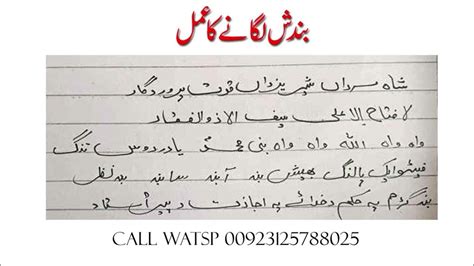 بندش لگانے کا عمل
شاہ مرداں شیر یزداں قوت پروردگار
لا فتاح الا علی سیف الا ذوالفقار
واہ واہ اللہ واہ واہ نبی محمد یا در دوس تنگ
بند آبند سا بند بند نفل
بند گردم به حکم د خدائے په اجازت د پیر استاد
CALL WATSP 00923125788025